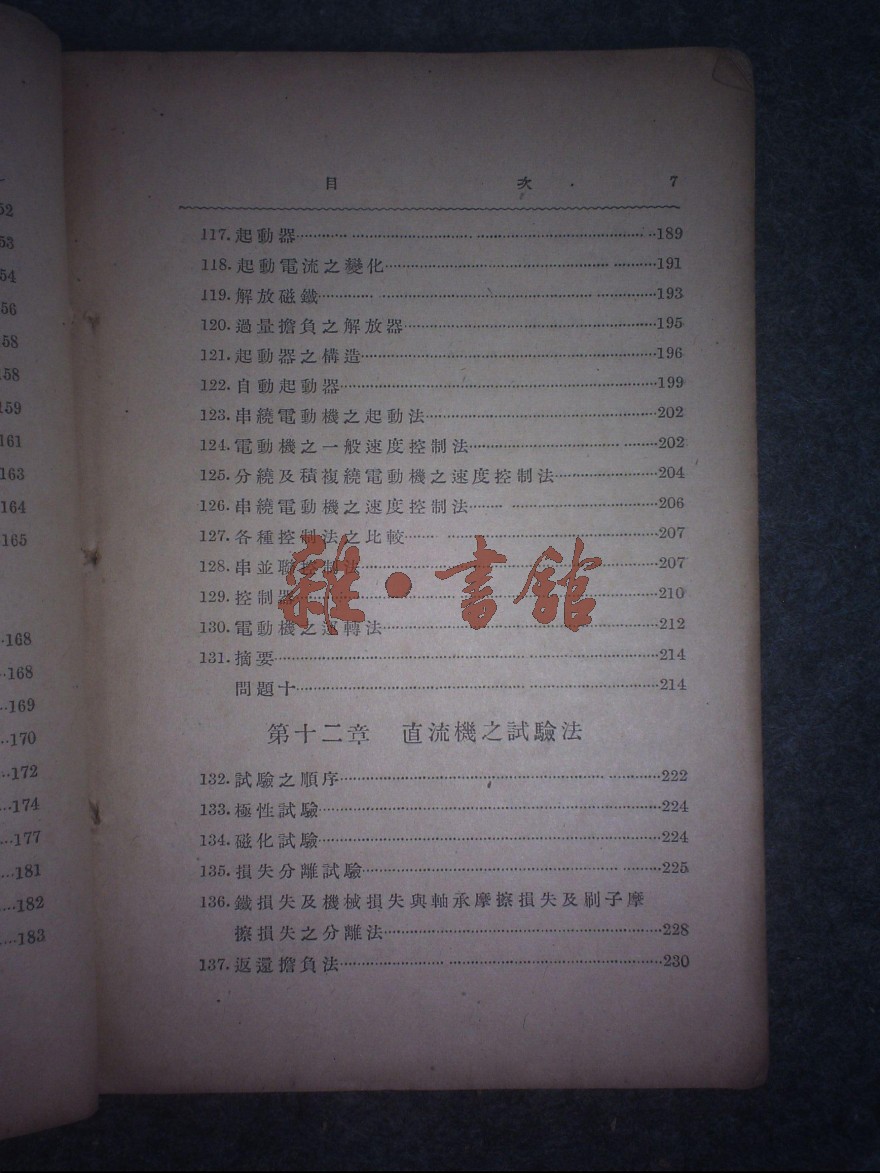 52
53
54
56
58
158
159
161
163
164
165
168
168
169
170
172
174
177
181
182
183
目 次 7
117. 起動器 189
118. 起動電流之變化 191
119. 解放磁鐵 193
120. 過量擔負之解放器 195
121. 起動器之構造 196
122. 自動起動器 199
123. 串繞電動機之起動法 202
124. 電動機之一般速度控制法 202
125. 分繞及積複繞電動機之速度控制法 204
126. 串繞電動機之速度控制法 206
127. 各種控制法之比較 207
128. 串並聯控制法 207
129. 控制器 210
130. 電動機之運轉法 212
131. 摘要 214
問題十 214
雜·書館
第十二章 直流機之試驗法
132. 試驗之順序 222
133. 極性試驗 224
134. 磁化試驗 224
135. 損失分離試驗 225
136. 鐵損失及機械損失與軸承摩擦損失及刷子摩
擦損失之分離法 228
137. 返還擔負法 230